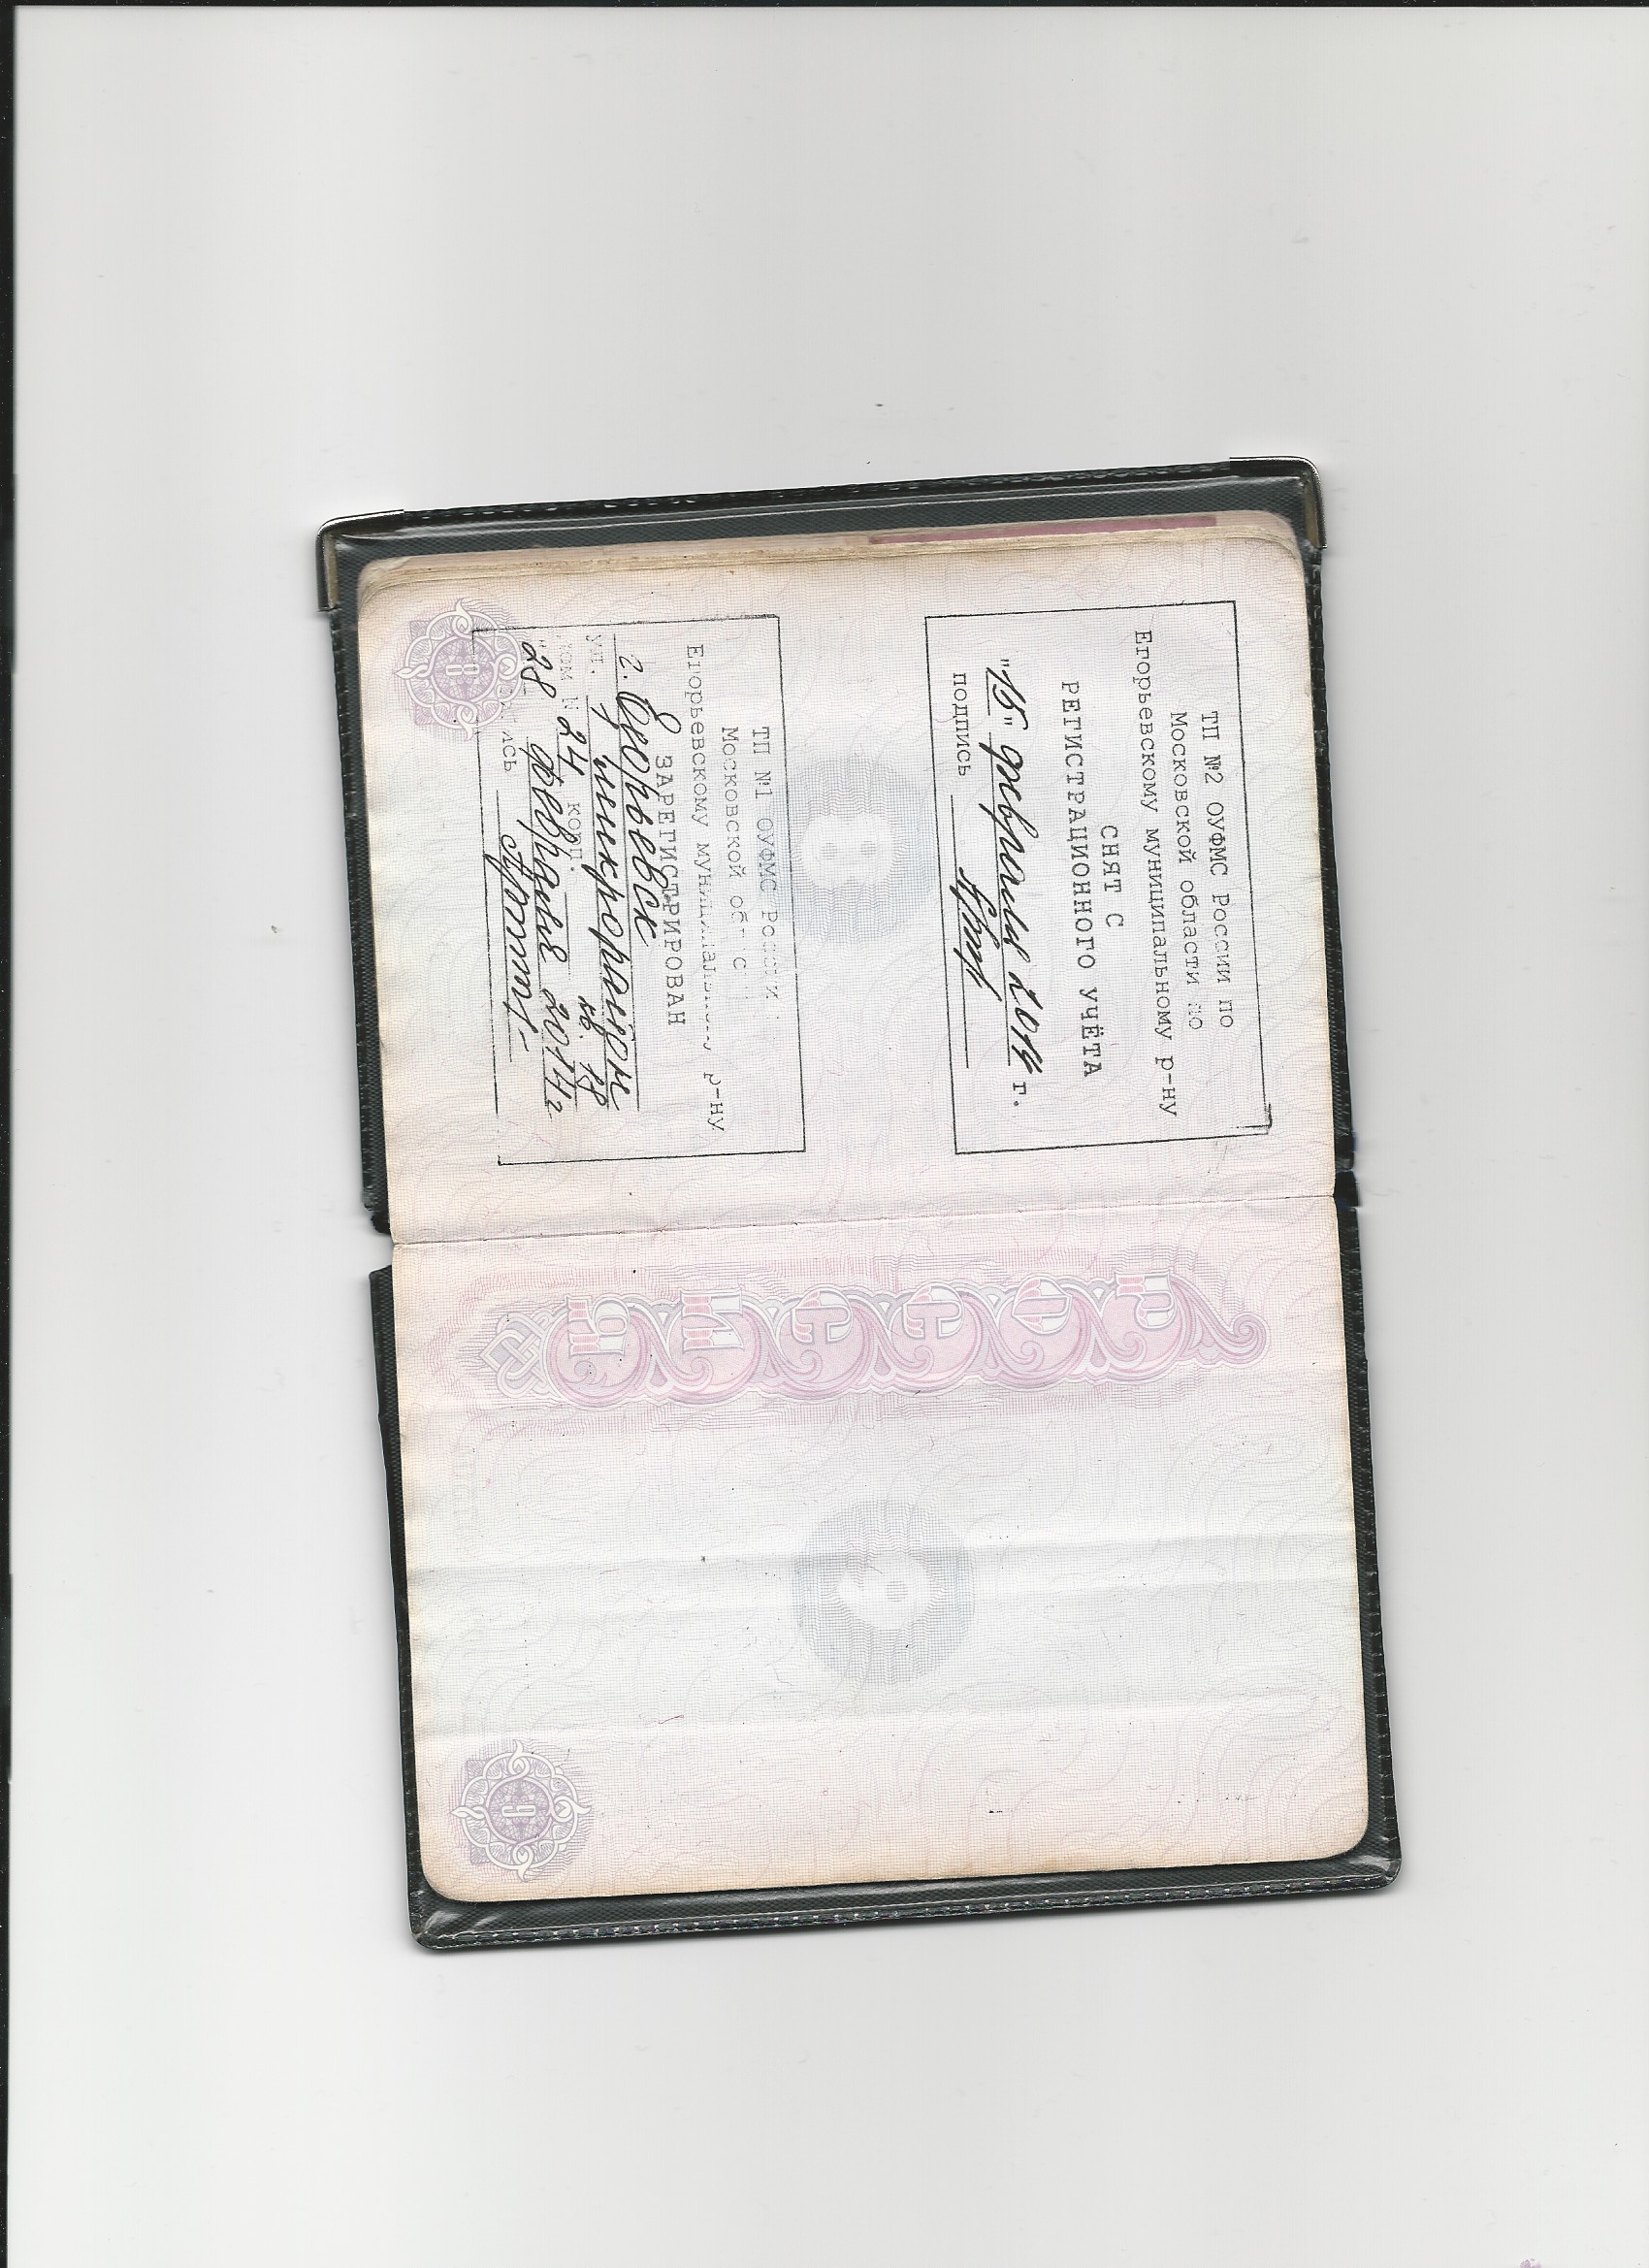 ТП №2 ОУФМС России по
Московской области по
Егорьевскому муниципальному р-ну
СНЯТ С
РЕГИСТРАЦИОННОГО УЧЁТА
"15" февраля 2014 г.
подпись
ТП №1 ОУФМС России
Московской
Егорьевскому муниципальному р-ну
ЗАРЕГИСТРИРОВАН
г. Егорьевск
ул. микрорайон
24 корп. кв. 18
28 февраля 2014г
8
РОССИЯ
9